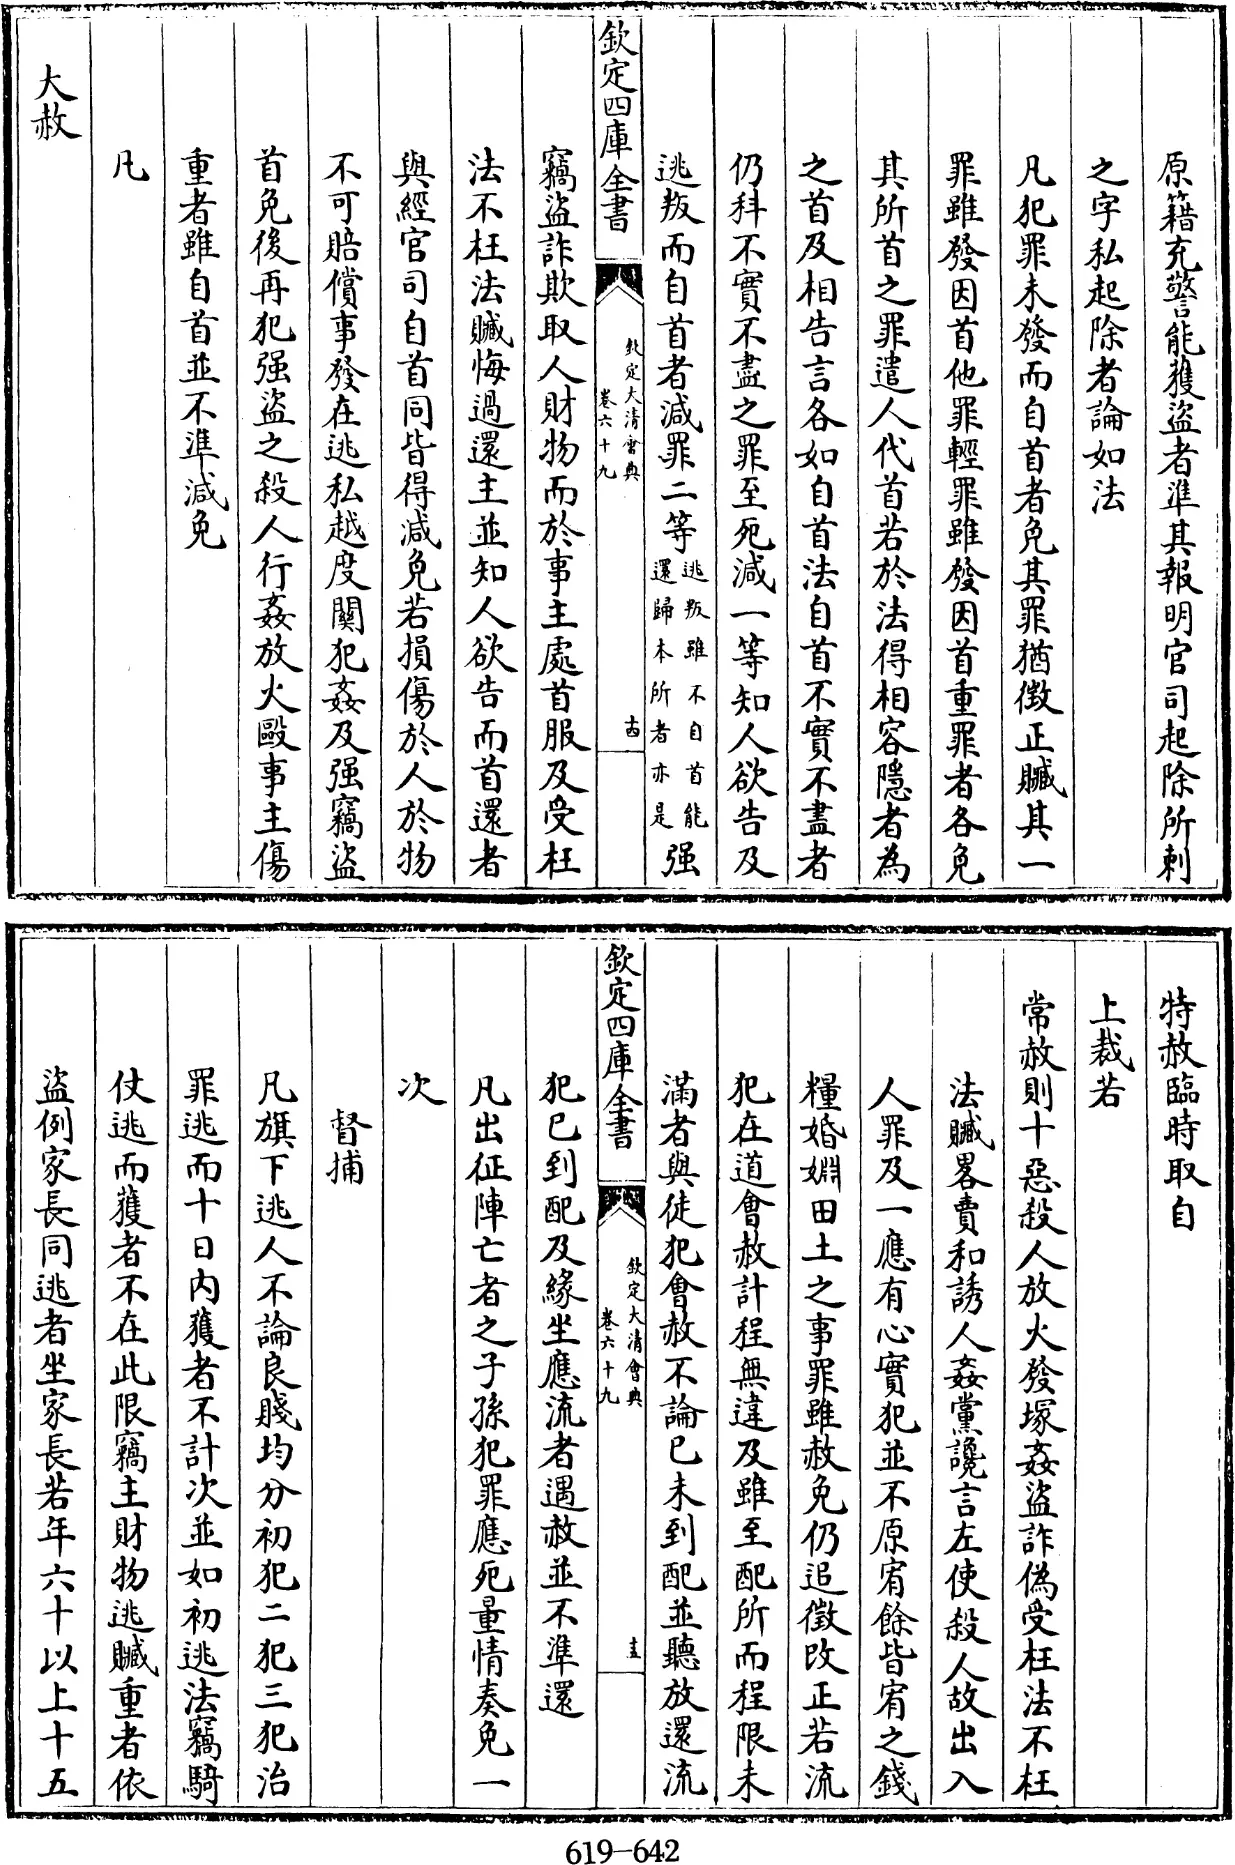 原籍充警能獲盜者準其報明官司起除所刺
之字私起除者論如法
凡犯罪未發而自首者免其罪猶徵正贓其一
罪雖發因首他罪輕罪雖發因首重罪者各免
其所首之罪遣人代首若於法得相容隱者為
之首及相告言各如自首法自首不實不盡者
仍科不實不盡之罪至死減一等知人欲告及
逃叛而自首者減罪二等逃叛雖不自首能還歸本所者亦是强
欽定四庫全書
欽定大清會典
卷六十九
十四
竊盜詐欺取人財物而於事主處首服及受枉
法不枉法贓悔過還主並知人欲告而首還者
與經官司自首同皆得減免若損傷於人於物
不可賠償事發在逃私越度關犯姦及强竊盜
首免後再犯强盜之殺人行姦放火毆事主傷
重者雖自首並不準減免
凡
大赦
特赦臨時取自
上裁若
常赦則十惡殺人放火發塚姦盜詐偽受枉法不枉
法贓畧賣和誘人姦黨讒言左使殺人故出入
人罪及一應有心實犯並不原宥餘皆宥之錢
糧婚姻田土之事罪雖赦免仍追徵改正若流
犯在道會赦計程無違及雖至配所而程限未
滿者與徒犯會赦不論已未到配並聽放還流
欽定四庫全書
欽定大清會典
卷六十九
十五
犯已到配及緣坐應流者遇赦並不準還
凡出征陣亡者之子孫犯罪應死量情奏免一
次
督捕
凡旗下逃人不論良賤均分初犯二犯三犯治
罪逃而十日內獲者不計次並如初逃法竊騎
仗逃而獲者不在此限竊主財物逃贓重者依
盜例家長同逃者坐家長若年六十以上十五
619-642